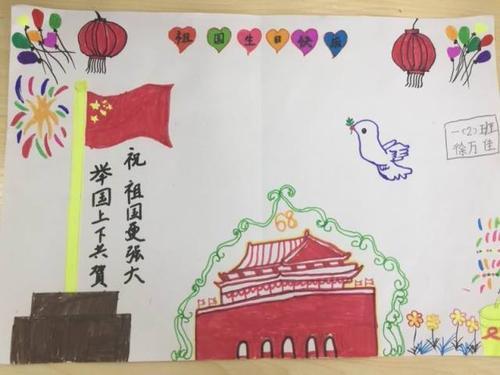 祖国生日快乐
祝祖国更强大
举国上下共賀
一(2)班
徐万佳
68